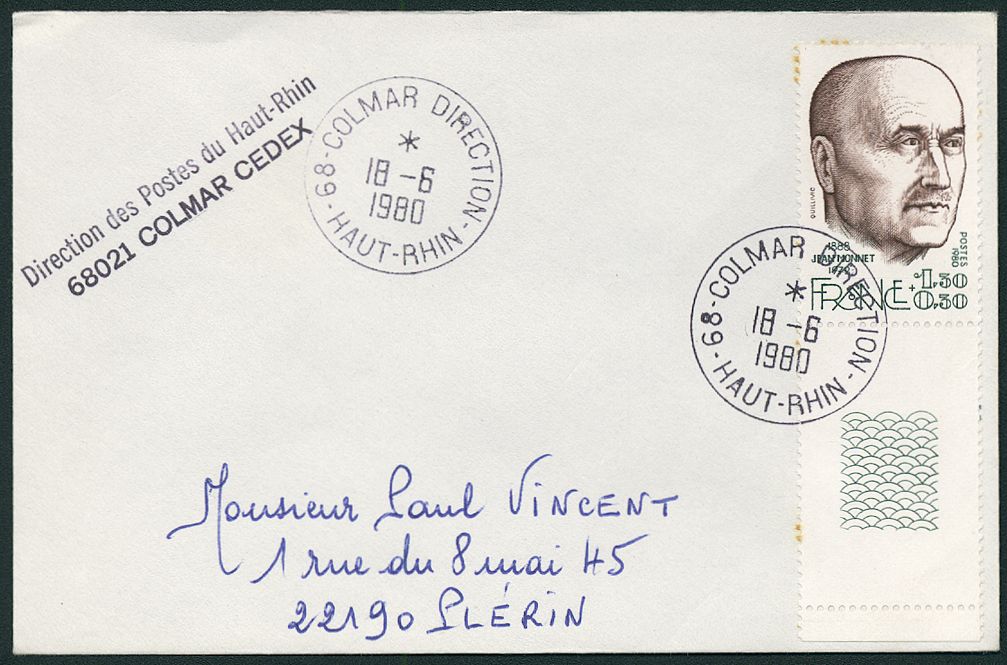 Direction des Postes du Haut-Rhin
68021 COLMAR CEDEX
68-COLMAR DIRECTION
*
18 -6
1980
-HAUT-RHIN-
QUILLIVIC
POSTES
1980
1888
JEAN MONNET
1979
FRANCE
1,30
+0,30
68-COLMAR DIRECTION
*
18 -6
1980
-HAUT-RHIN-
Monsieur Paul VINCENT
1 rue du 8 mai 45
22190 PLÉRIN